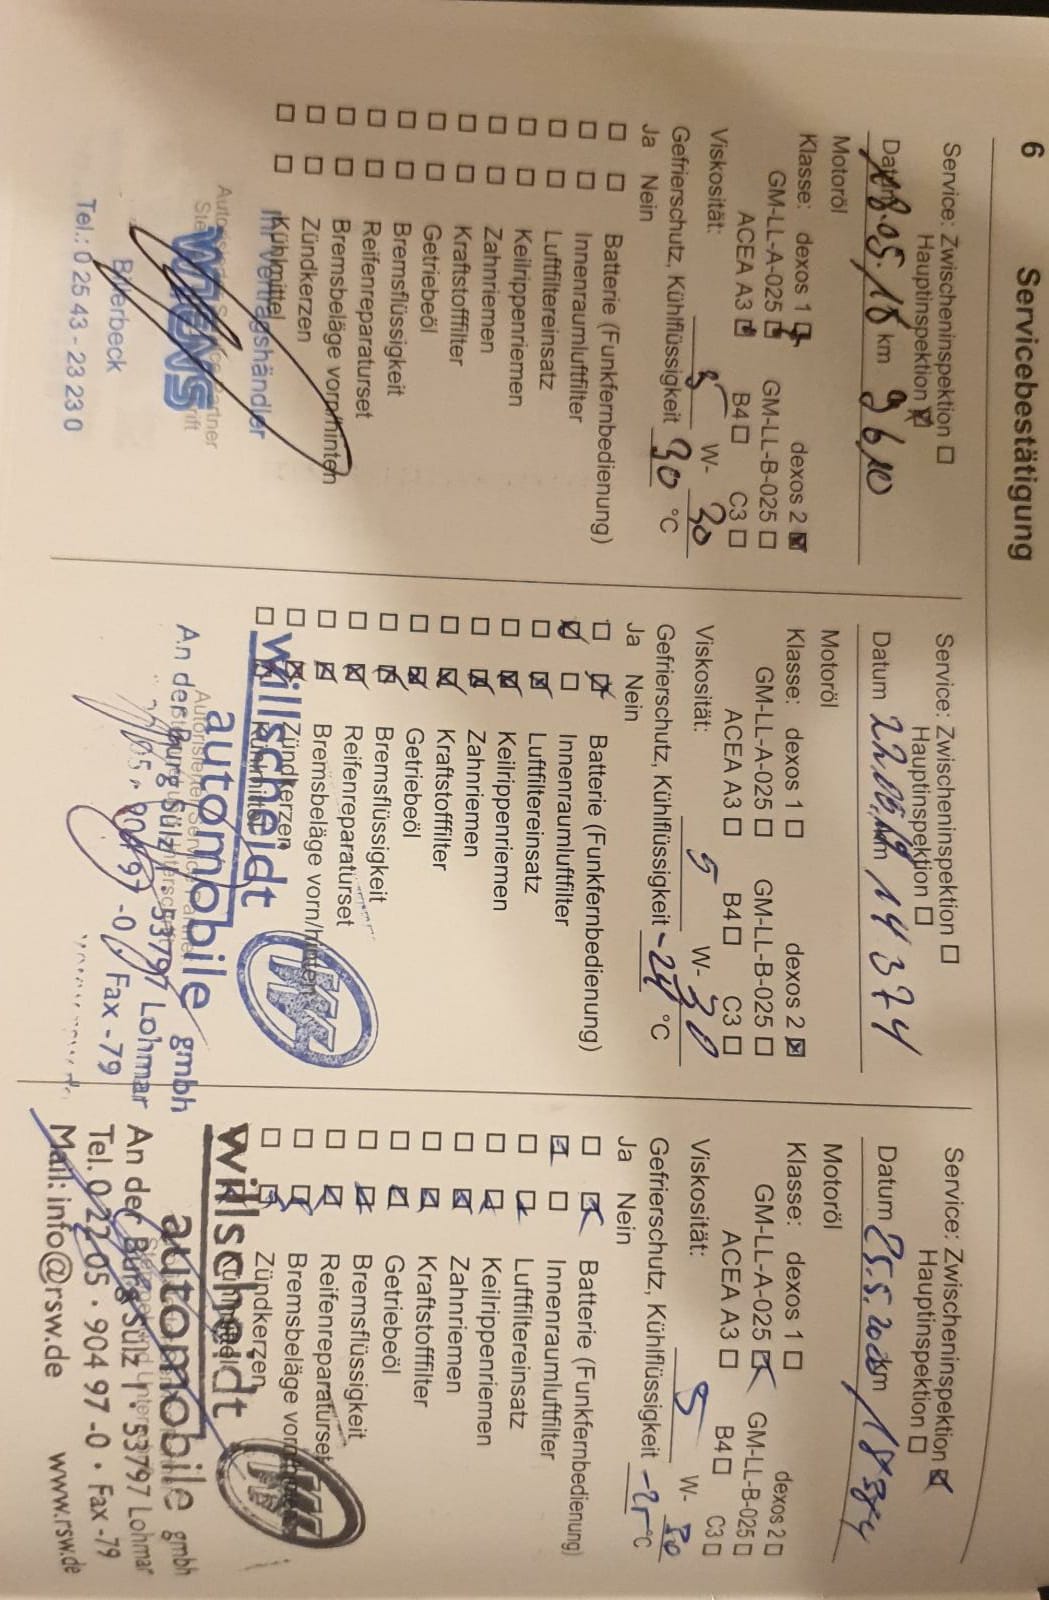 6 Servicebestätigung
Service: Zwischeninspektion ☐
Hauptinspektion ☒
Datum 18.05.18 km 9610
Motoröl
Klasse: dexos 1 ☒ dexos 2 ☒
GM-LL-A-025 ☒ GM-LL-B-025 ☐
ACEA A3 ☒ B4 ☐ C3 ☐
Viskosität: 5 W- 30
Gefrierschutz, Kühlflüssigkeit 30 °C
Ja Nein
☐ ☐ Batterie (Funkfernbedienung)
☐ ☐ Innenraumluftfilter
☐ ☐ Luftfiltereinsatz
☐ ☐ Keilrippenriemen
☐ ☐ Zahnriemen
☐ ☐ Kraftstofffilter
☐ ☐ Getriebeöl
☐ ☐ Bremsflüssigkeit
☐ ☐ Reifenreparaturset
☐ ☐ Bremsbeläge vorn/hinten
☐ ☐ Zündkerzen
☐ ☐ Kühlmittel
Ihr Vertragshändler
WIENS
Billerbeck
Tel.: 0 25 43 - 23 23 0
Service: Zwischeninspektion ☐
Hauptinspektion ☐
Datum 22.05.19 km 14 374
Motoröl
Klasse: dexos 1 ☐ dexos 2 ☒
GM-LL-A-025 ☐ GM-LL-B-025 ☐
ACEA A3 ☐ B4 ☐ C3 ☐
Viskosität: 5 W- 30
Gefrierschutz, Kühlflüssigkeit °C
Ja Nein
☐ ☒ Batterie (Funkfernbedienung)
☒ ☐ Innenraumluftfilter
☐ ☒ Luftfiltereinsatz
☐ ☒ Keilrippenriemen
☐ ☒ Zahnriemen
☐ ☒ Kraftstofffilter
☐ ☒ Getriebeöl
☐ ☒ Bremsflüssigkeit
☐ ☒ Reifenreparaturset
☐ ☒ Bremsbeläge vorn/hinten
☐ ☒ Zündkerzen
☐ ☒ Kühlmittel
willscheidt
automobile gmbh
Autorisierter Service Partner
An der Burg Sülz 1 · 53797 Lohmar
904 97 -0 Fax -79
Service: Zwischeninspektion ☒
Hauptinspektion ☐
Datum 25.5.20 km
Motoröl
Klasse: dexos 1 ☐ dexos 2 ☐
GM-LL-A-025 ☒ GM-LL-B-025 ☐
ACEA A3 ☐ B4 ☐ C3 ☐
Viskosität: 5 W- 30
Gefrierschutz, Kühlflüssigkeit °C
Ja Nein
☐ ☒ Batterie (Funkfernbedienung)
☒ ☐ Innenraumluftfilter
☐ ☒ Luftfiltereinsatz
☐ ☒ Keilrippenriemen
☐ ☒ Zahnriemen
☐ ☒ Kraftstofffilter
☐ ☒ Getriebeöl
☐ ☒ Bremsflüssigkeit
☐ ☒ Reifenreparaturset
☐ ☒ Bremsbeläge vorn/hinten
☐ ☒ Zündkerzen
☐ ☒ Kühlmittel
willscheidt
automobile gmbh
An der Burg Sülz 1 · 53797 Lohmar
Tel. 0 22 05 · 904 97 -0 · Fax -79
Mail: info@rsw.de www.rsw.de